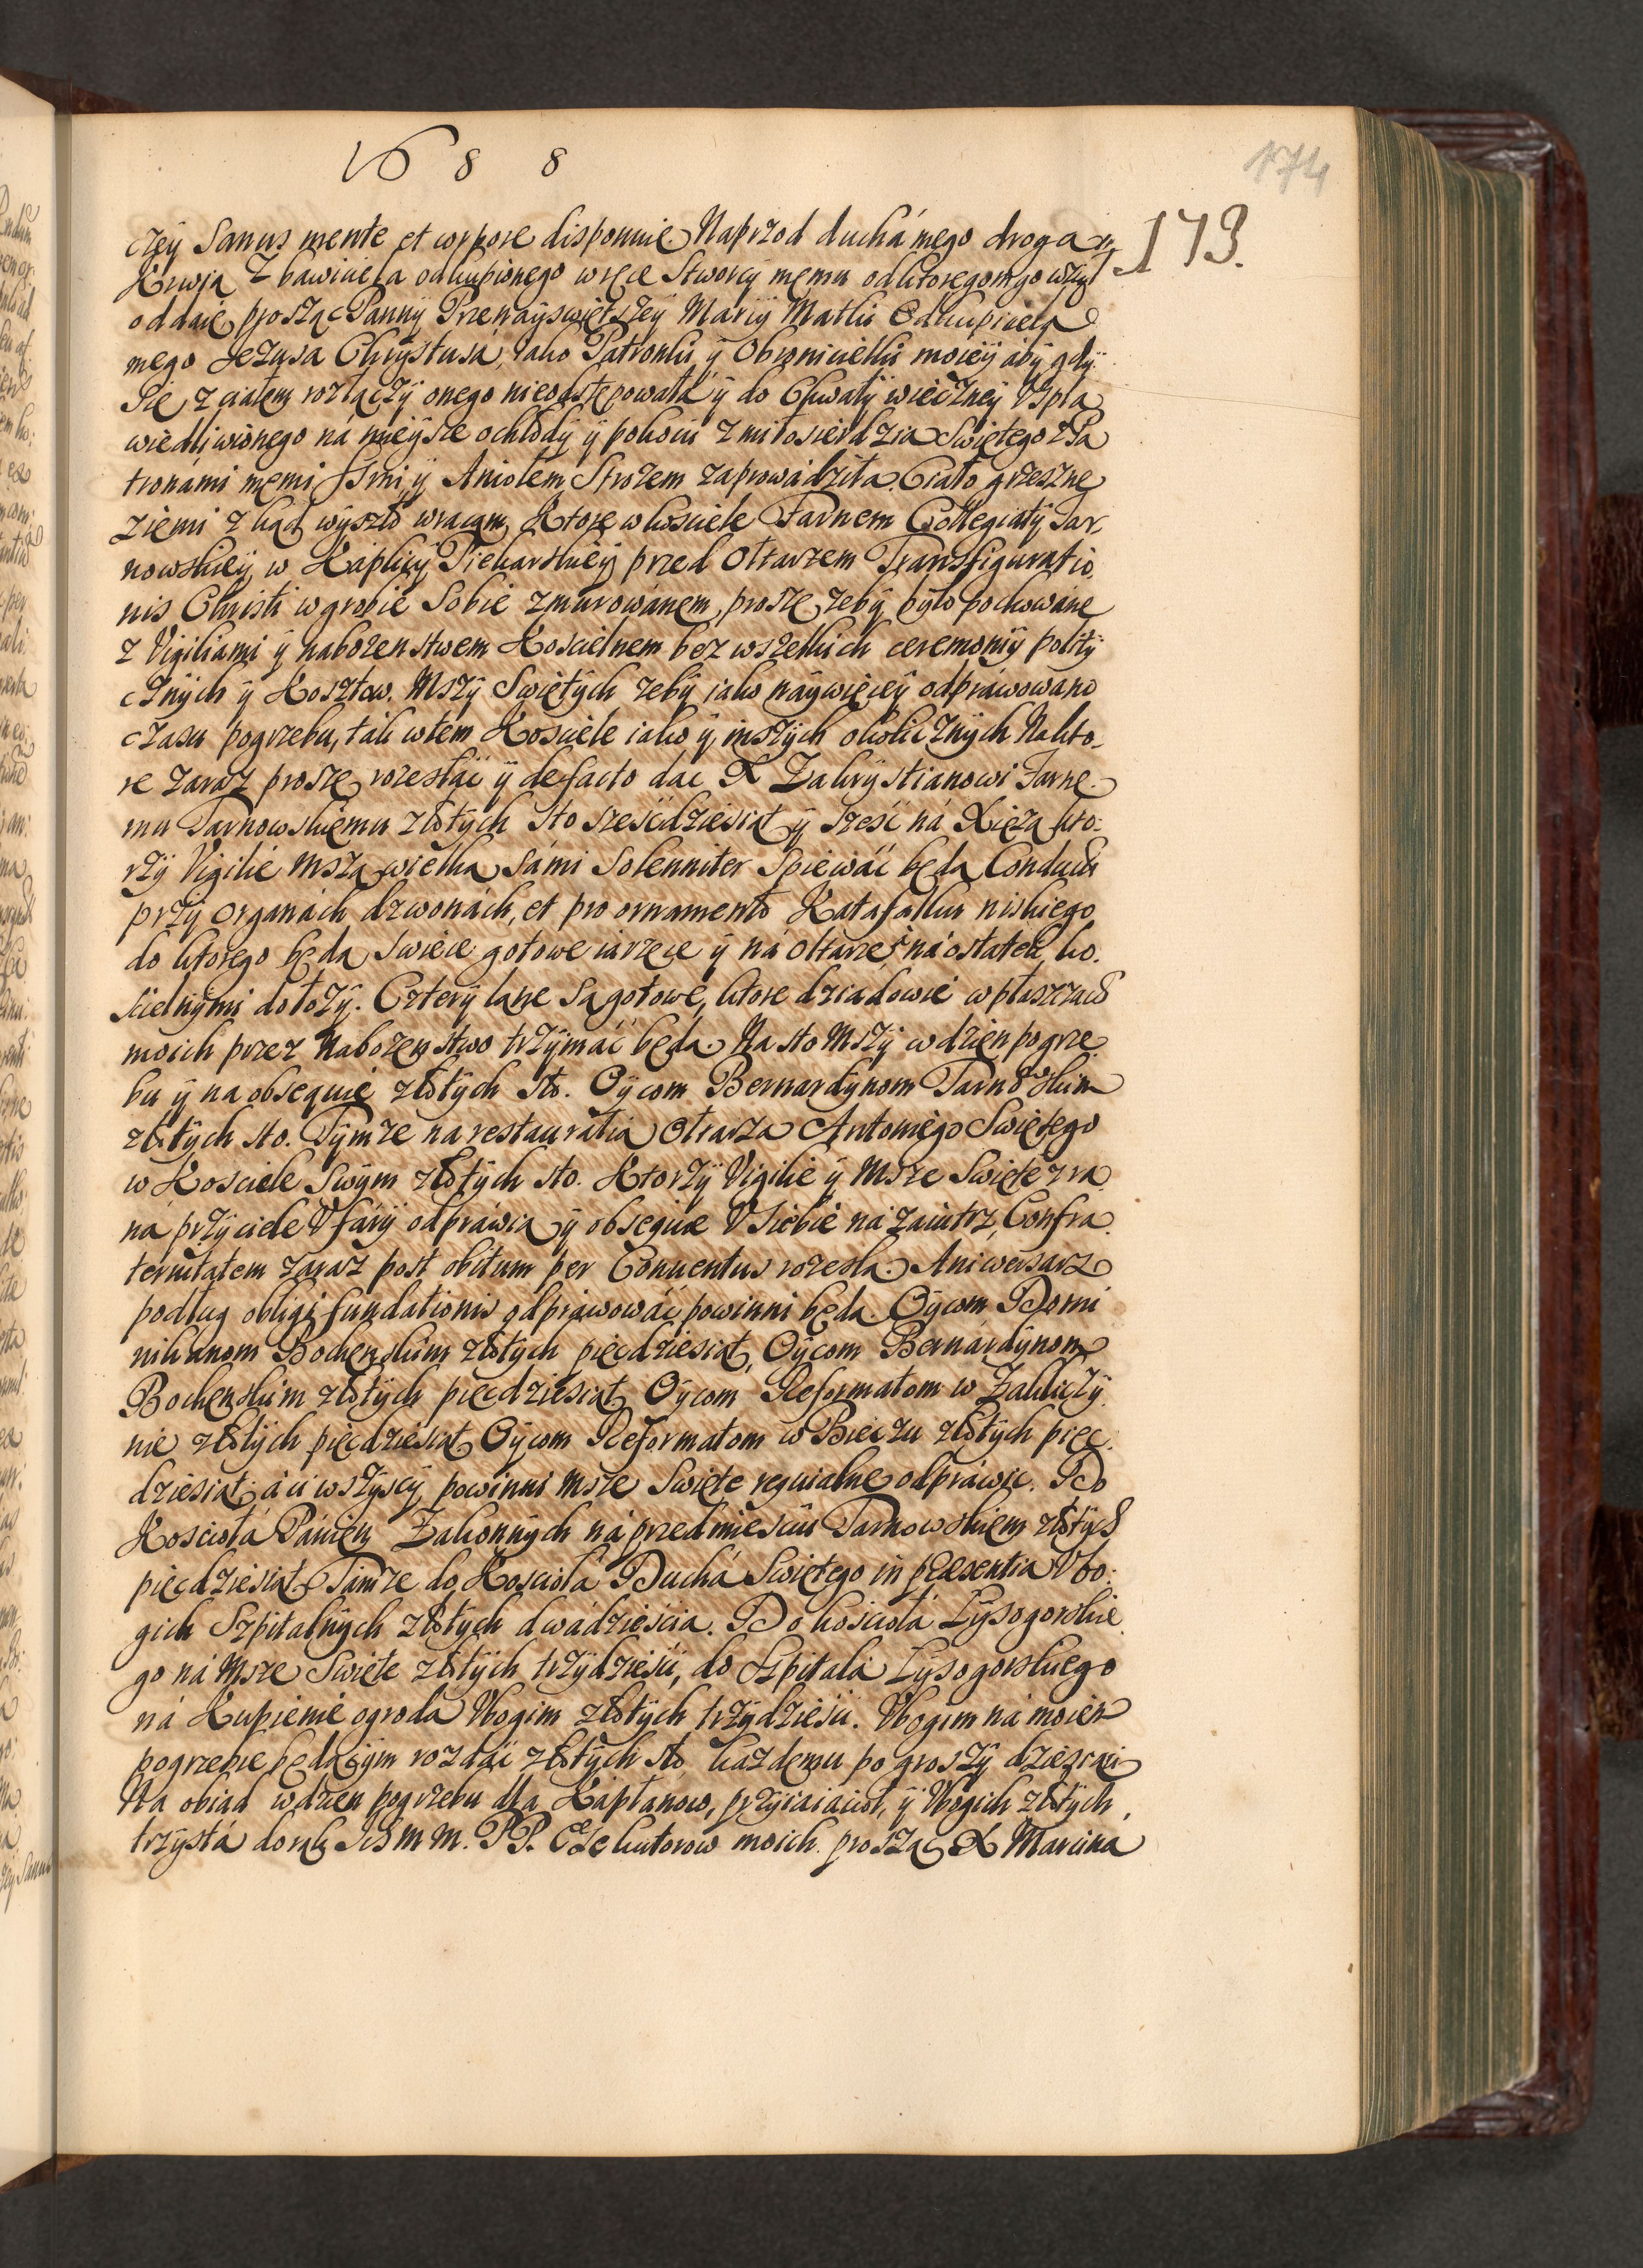 1688
174
173.
czey Sanus mente et corpore disponuie. Naprzod duchá mego drogą
Krwią Zbawiciela odkupionego w ręce Stworcy memu od ktorego go wziął
oddaię, prosząc Panny Przenayswiętszey Maryi Matki Odkupiciela
mego Jezusa Chrystusá, iako Patronki y Obronicielki moiey áby gdy
Się z ciałem rozłączy onego nieodstępowała y do Chwały wieczney Vspra
wiedliwionego ná mieysce ochłody y pokoiu z miłosierdzia Swiętego z Pa
tronámi memi SSmi y Aniołem Strożem záprowádziła. Ciało grzeszne
ziemi zkąd wyszło wracam, Ktore w kosciele Farnem Collegiaty Tar,
nowskiey w Káplicy Piekarskiey przed Ołtarzem Transfiguratio,
nis Christi w grobie Sobie zmurowánem, proszę, zeby było pochowáne
z Vigiliami y nabozenstwem Koscielnem bez wszelkich ceremoniy polity
cznych y Kosztow. Mszy Swiętych zeby iako naywięcey odpráwowano
czasu pogrzebu, ták w tem Kosciele iako y inszych okolicznych Na kto-
re zaraz proszę rozesłáć y de facto dac X Zakrystianowi Farne.
mu Tarnowskiemu złotych sto szescdziesiąt y szesć ná Xięzą kto:
rzy Vigilie Mszą wielką sámi Solenniter Spiewáć będą Conduct
przy Organách dzwonách, et pro ornamento Katafalku niskiego
do ktorego będą swiece gotowe iárzęce y ná Ołtarze ná ostatek ko.
scielnymi dołoży. Cztery lane są gotowe, ktore dziadowie w płaszczach
moich przez Nabozenstwo trzymáć będą. Na sto Mszy w dzien pogrze.
bu y na obsequie złotych sto. Oycom Bernardynom Tarnowskim
złotych sto. Tymze na restauratią Ołtarza Antoniego Swiętego
w Kosciele Swym złotych sto. Ktorzy Vigilie y Msze Swięte z ra
ná przy ciele V fáry odpráwią y obsequie V Siebie názaiutrz, Confra.
ternitatem zaraz post obitum per Conuentus rozeslą. Aniwersarz
podług obligi fundationis odpráwowáć powinni będą. Oycom Domi
nikanom Bochenskim złotych pięcdziesiąt, Oycom Bernárdynom
Bochenskim złotych pięcdziesiąt, Oycom Reformatom w Zakliczy.
nie złotych pięcdziesiąt, Oycom Reformatom w Bieczu złotych pięc.
dziesiąt, á ci wszyscy powinni Msze Swięte requialne odpráwic. Do
Kosciołá Pánien Zakonnych ná przedmiesciu Tarnowskiem złotych
pięcdziesiąt. Tamze do Kosciołá Duchá Swiętego in præsentia Vbo:
gich Szpitalnych złotych dwádziescia. Do kosciołá Łysogorskie
go ná Msze Swięte złotych trzydziesci, do Szpitalá Łysogorskiego
ná Kupienie ogrodá Vbogim złotych trzydziesci. Vbogim ná moiem
pogrzebie będącym rozdáć złotych sto każdemu po groszy dziesiąci
Na obiad w dzien pogrzebu dla Kápłanow, przyiaciioł, y Vbogich złotych
trzystá do rąk Ichm m. PP. Exekutorow moich. prosząc X Marciná